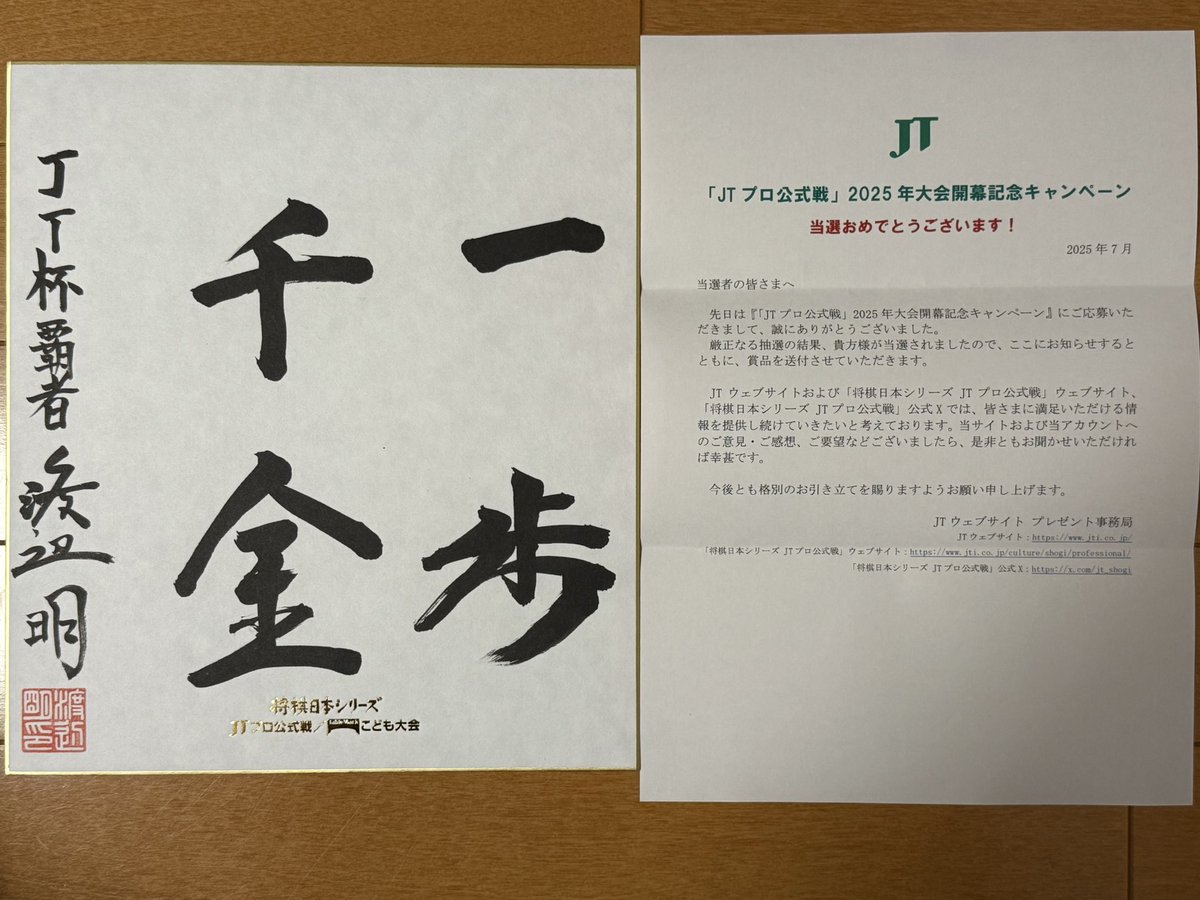 一歩
千金
JT杯覇者 渡辺明
渡辺
明印
将棋日本シリーズ
JTプロ公式戦/テーブルマークこども大会
JT
「JTプロ公式戦」2025年大会開幕記念キャンペーン
当選おめでとうございます！
2025年7月
当選者の皆さまへ
先日は『「JTプロ公式戦」2025年大会開幕記念キャンペーン』にご応募いた
だきまして、誠にありがとうございました。
厳正なる抽選の結果、貴方様が当選されましたので、ここにお知らせすると
ともに、賞品を送付させていただきます。
JTウェブサイトおよび「将棋日本シリーズ JTプロ公式戦」ウェブサイト、
「将棋日本シリーズ JTプロ公式戦」公式Xでは、皆さまに満足いただける情
報を提供し続けていきたいと考えております。当サイトおよび当アカウントへ
のご意見・ご感想、ご要望などございましたら、是非ともお聞かせいただけれ
ば幸甚です。
今後とも格別のお引き立てを賜りますようお願い申し上げます。
JTウェブサイト プレゼント事務局
JTウェブサイト：https://www.jti.co.jp/
「将棋日本シリーズ JTプロ公式戦」ウェブサイト：https://www.jti.co.jp/culture/shogi/professional/
「将棋日本シリーズ JTプロ公式戦」公式X：https://x.com/jt_shogi